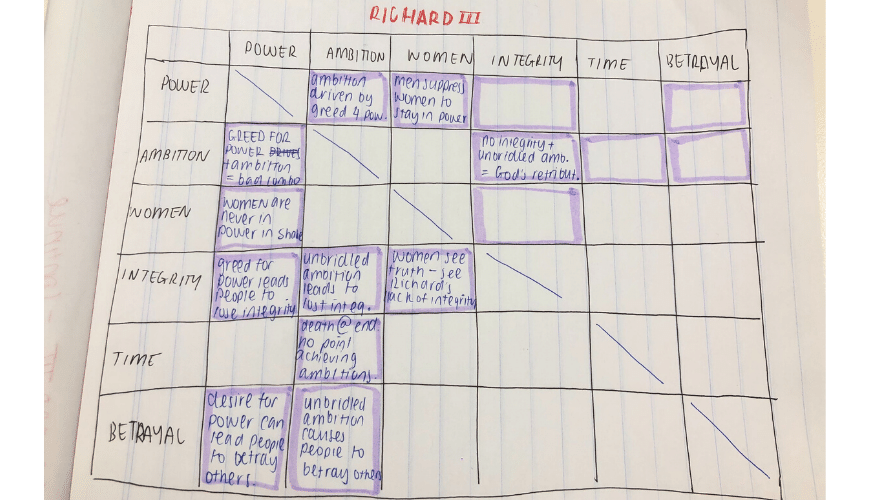 RICHARD III
POWER AMBITION WOMEN INTEGRITY TIME BETRAYAL
POWER
ambition
driven by
greed 4 pow.
men suppress
women to
stay in power
AMBITION
GREED FOR
POWER DRIVES
+ambition
= bad combo
no integrity +
unbridled amb.
= God's retribut.
WOMEN
WOMEN are
never in
power in shake
INTEGRITY
greed for
power leads
people to
lose integrity
unbridled
ambition
leads to
lost integ.
women see
truth - see
Richard's
lack of integrity
TIME
death @ end
no point
achieving
ambitions.
BETRAYAL
desire for
power can
lead people
to betray
others.
unbridled
ambition
causes
people to
betray others